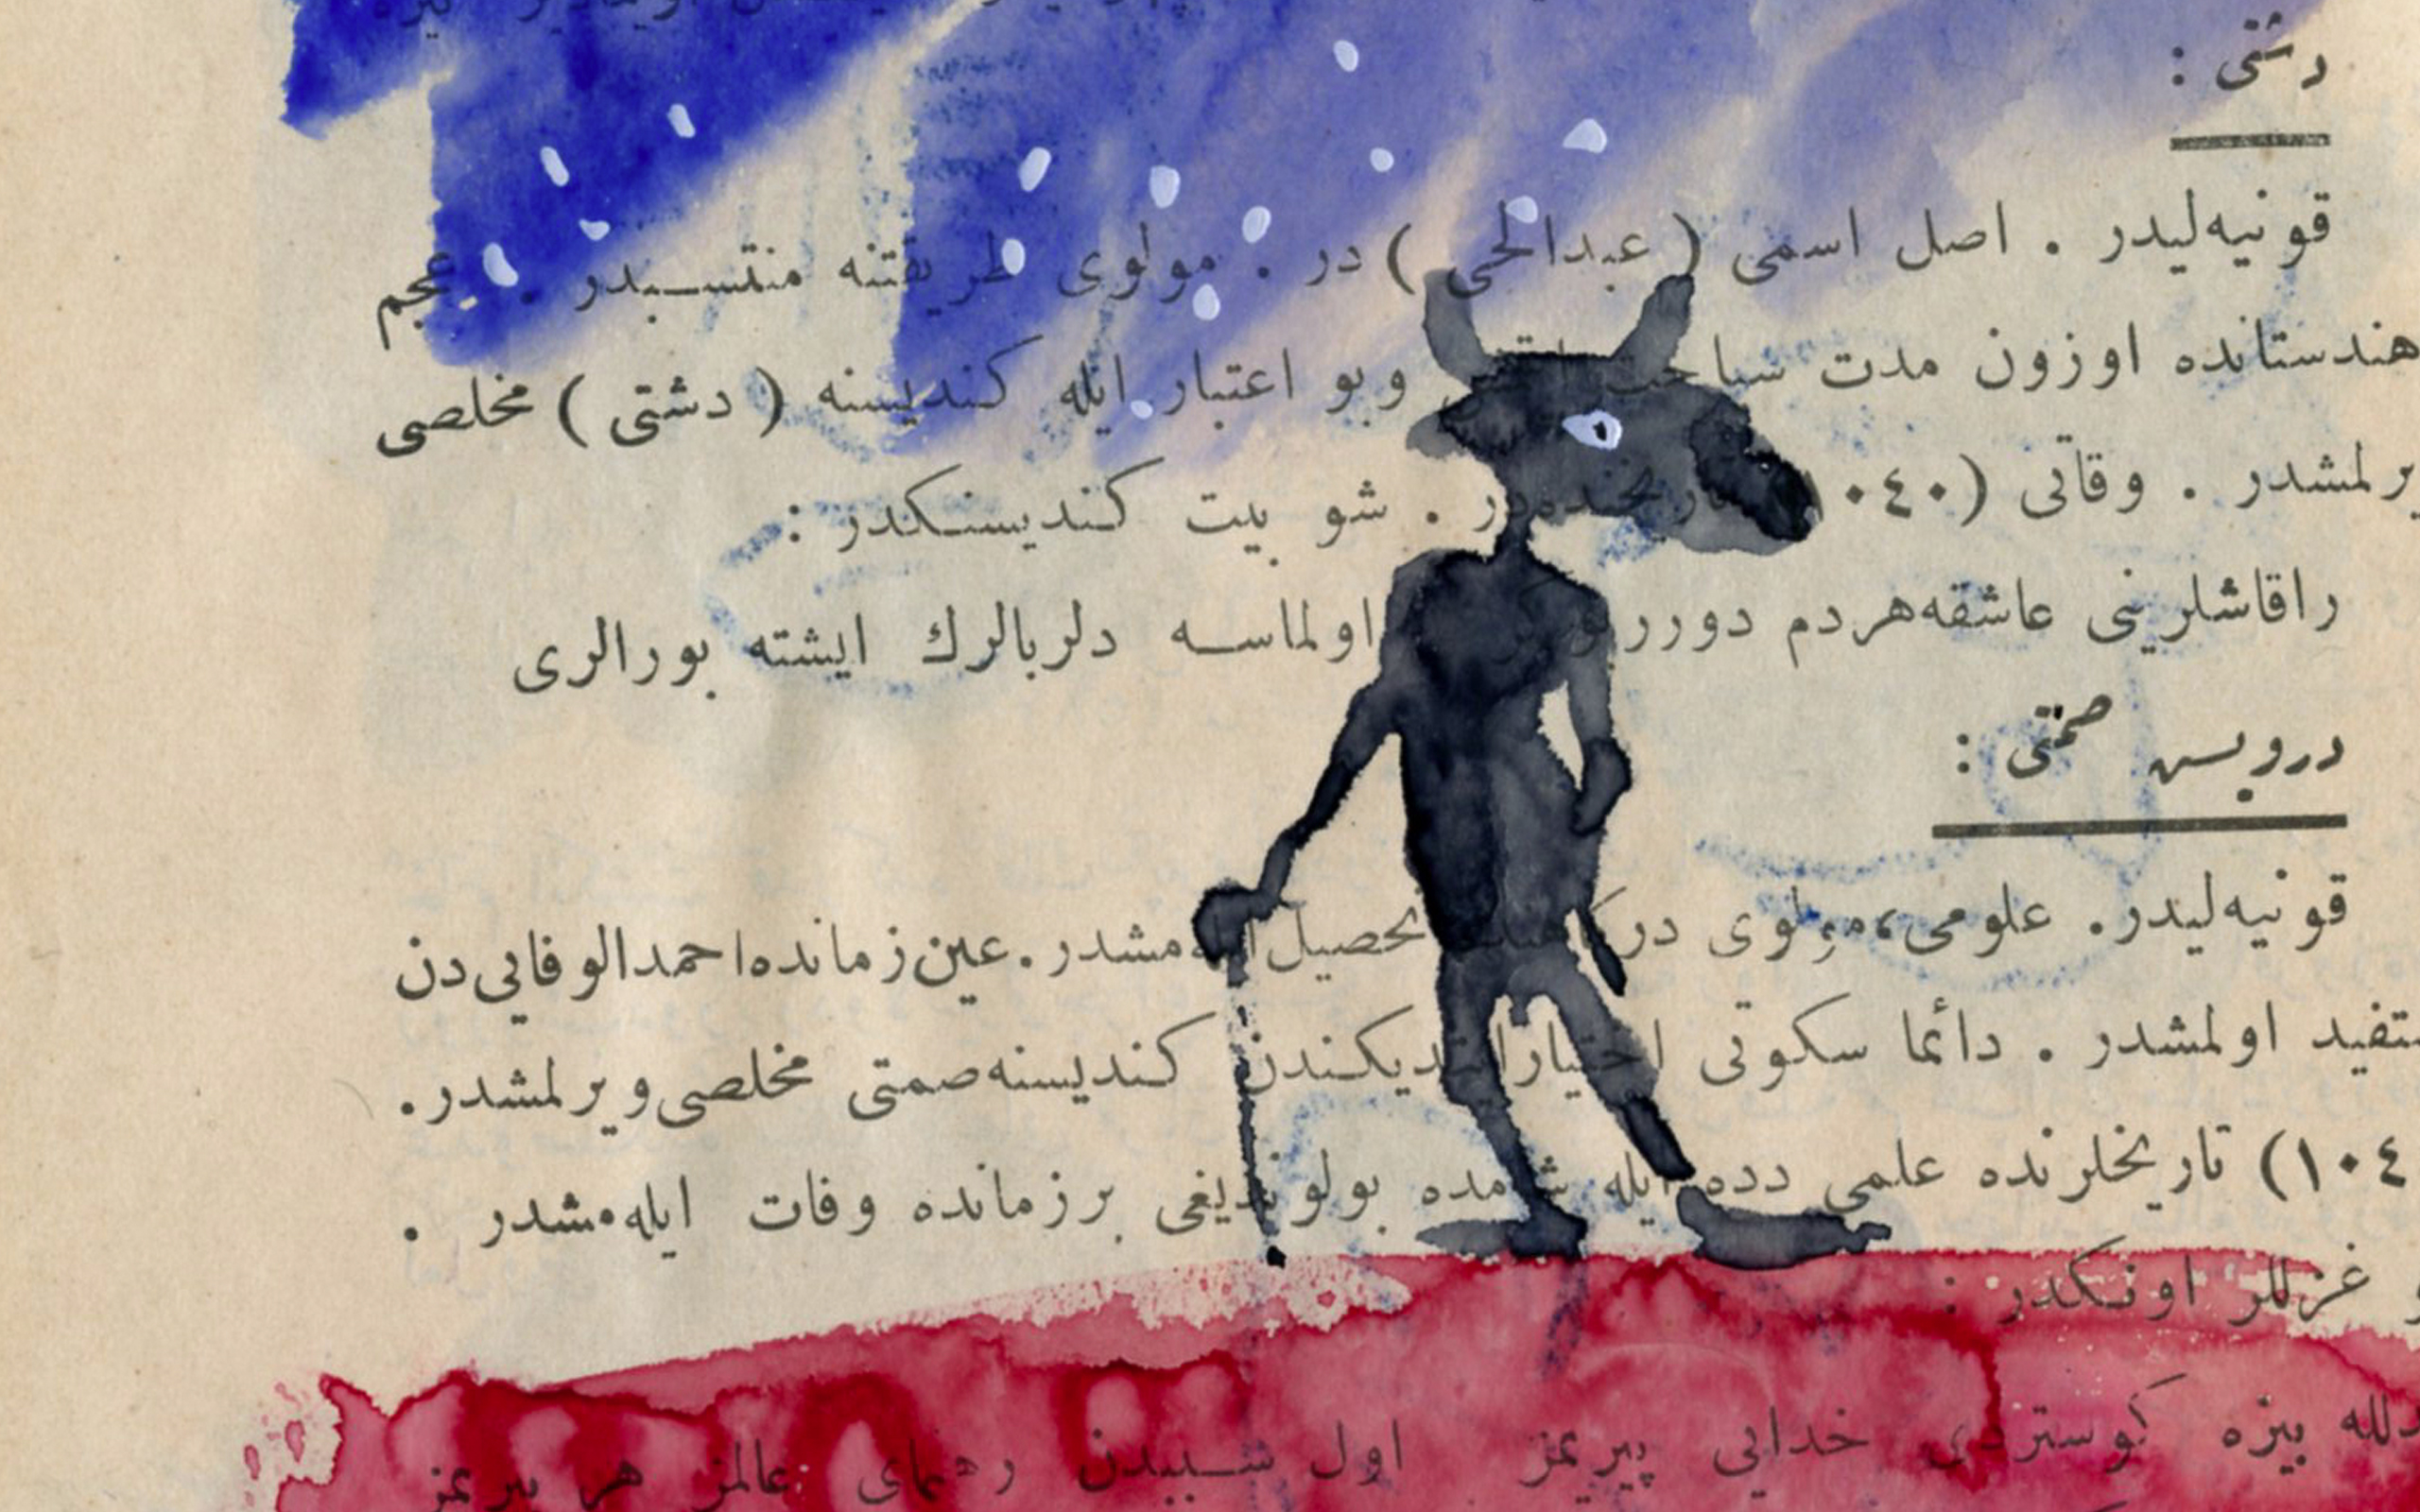 دشتی :
قونیه‌لیدر . اصل اسمی ( عبدالحی ) در . مولوی طریقتنه منتسبدر . عجم
هندستانده اوزون مدت سیاحت وبو اعتبار ایله کندیسنه ( دشتی ) مخلصی
یرلمشدر . وفاتی (٠٤٠ در . شو بیت کندیسنکدر :
راقاشلرینی عاشقه‌هردم دورر اولماسه دلربالرك ایشته بورالری
درویش صمتی :
قونیه‌لیدر. علومی، مولوی تحصیل ایله‌مشدر. عین‌زمانده احمدالوفایی‌دن
ستفید اولمشدر . دائما سکوتی اختیارایتدیکندن کندیسنه صمتی مخلصی ویرلمشدر.
١٠٤) تاریخلرنده علمی دده ایله شامده بولوندیغی برزمانده وفات ایله‌مشدر .
و غزللر اونکدر :
بیزه کوستردی خدایی پیریمز اول رهنمای عالمز هر پیریمز